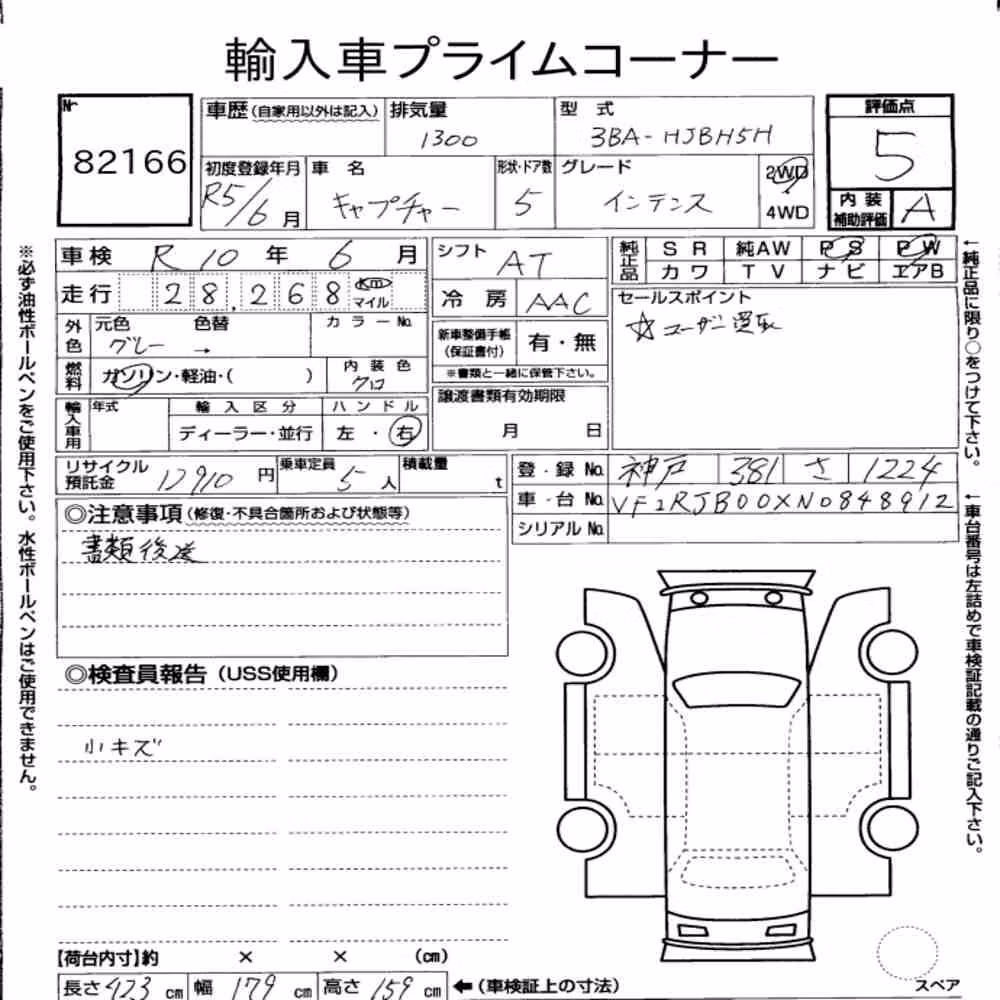 輸入車プライムコーナー
Nr 82166
車歴(自家用以外は記入) 排気量 1300 型式 3BA-HJBH5H
初度登録年月 R5/6月 車名 キャプチャー 形状・ドア数 5 グレード インテンス 2WD 4WD
評価点 5
内装補助評価 A
車検 R10年 6月 シフト AT
純正品 SR 純AW PS PW
カワ TV ナビ エアB
走行 28,268 km マイル 冷房 AAC
セールスポイント
☆ユーザー買取
外色 元色 色替 カラーNo.
グレー →
新車整備手帳(保証書付) 有・無
※書類と一緒に保管下さい。
燃料 ガソリン・軽油・( ) 内装色 クロ
輸入車用 年式 輸入区分 ハンドル
ディーラー・並行 左・右
譲渡書類有効期限
月 日
リサイクル預託金 12910円 乗車定員 5人 積載量 t
登・録No. 神戸 381 さ 1224
車・台No. VF1RJB00XN0848912
シリアルNo.
◎注意事項(修復・不具合箇所および状態等)
書類後送
◎検査員報告(USS使用欄)
小キズ
【荷台内寸】約 × × (cm)
長さ 423 cm 幅 179 cm 高さ 159 cm ←(車検証上の寸法)
スペア
※必ず油性ボールペンをご使用下さい。水性ボールペンはご使用できません。
←純正品に限り○をつけて下さい。
←車台番号は左詰めで車検証記載の通りご記入下さい。